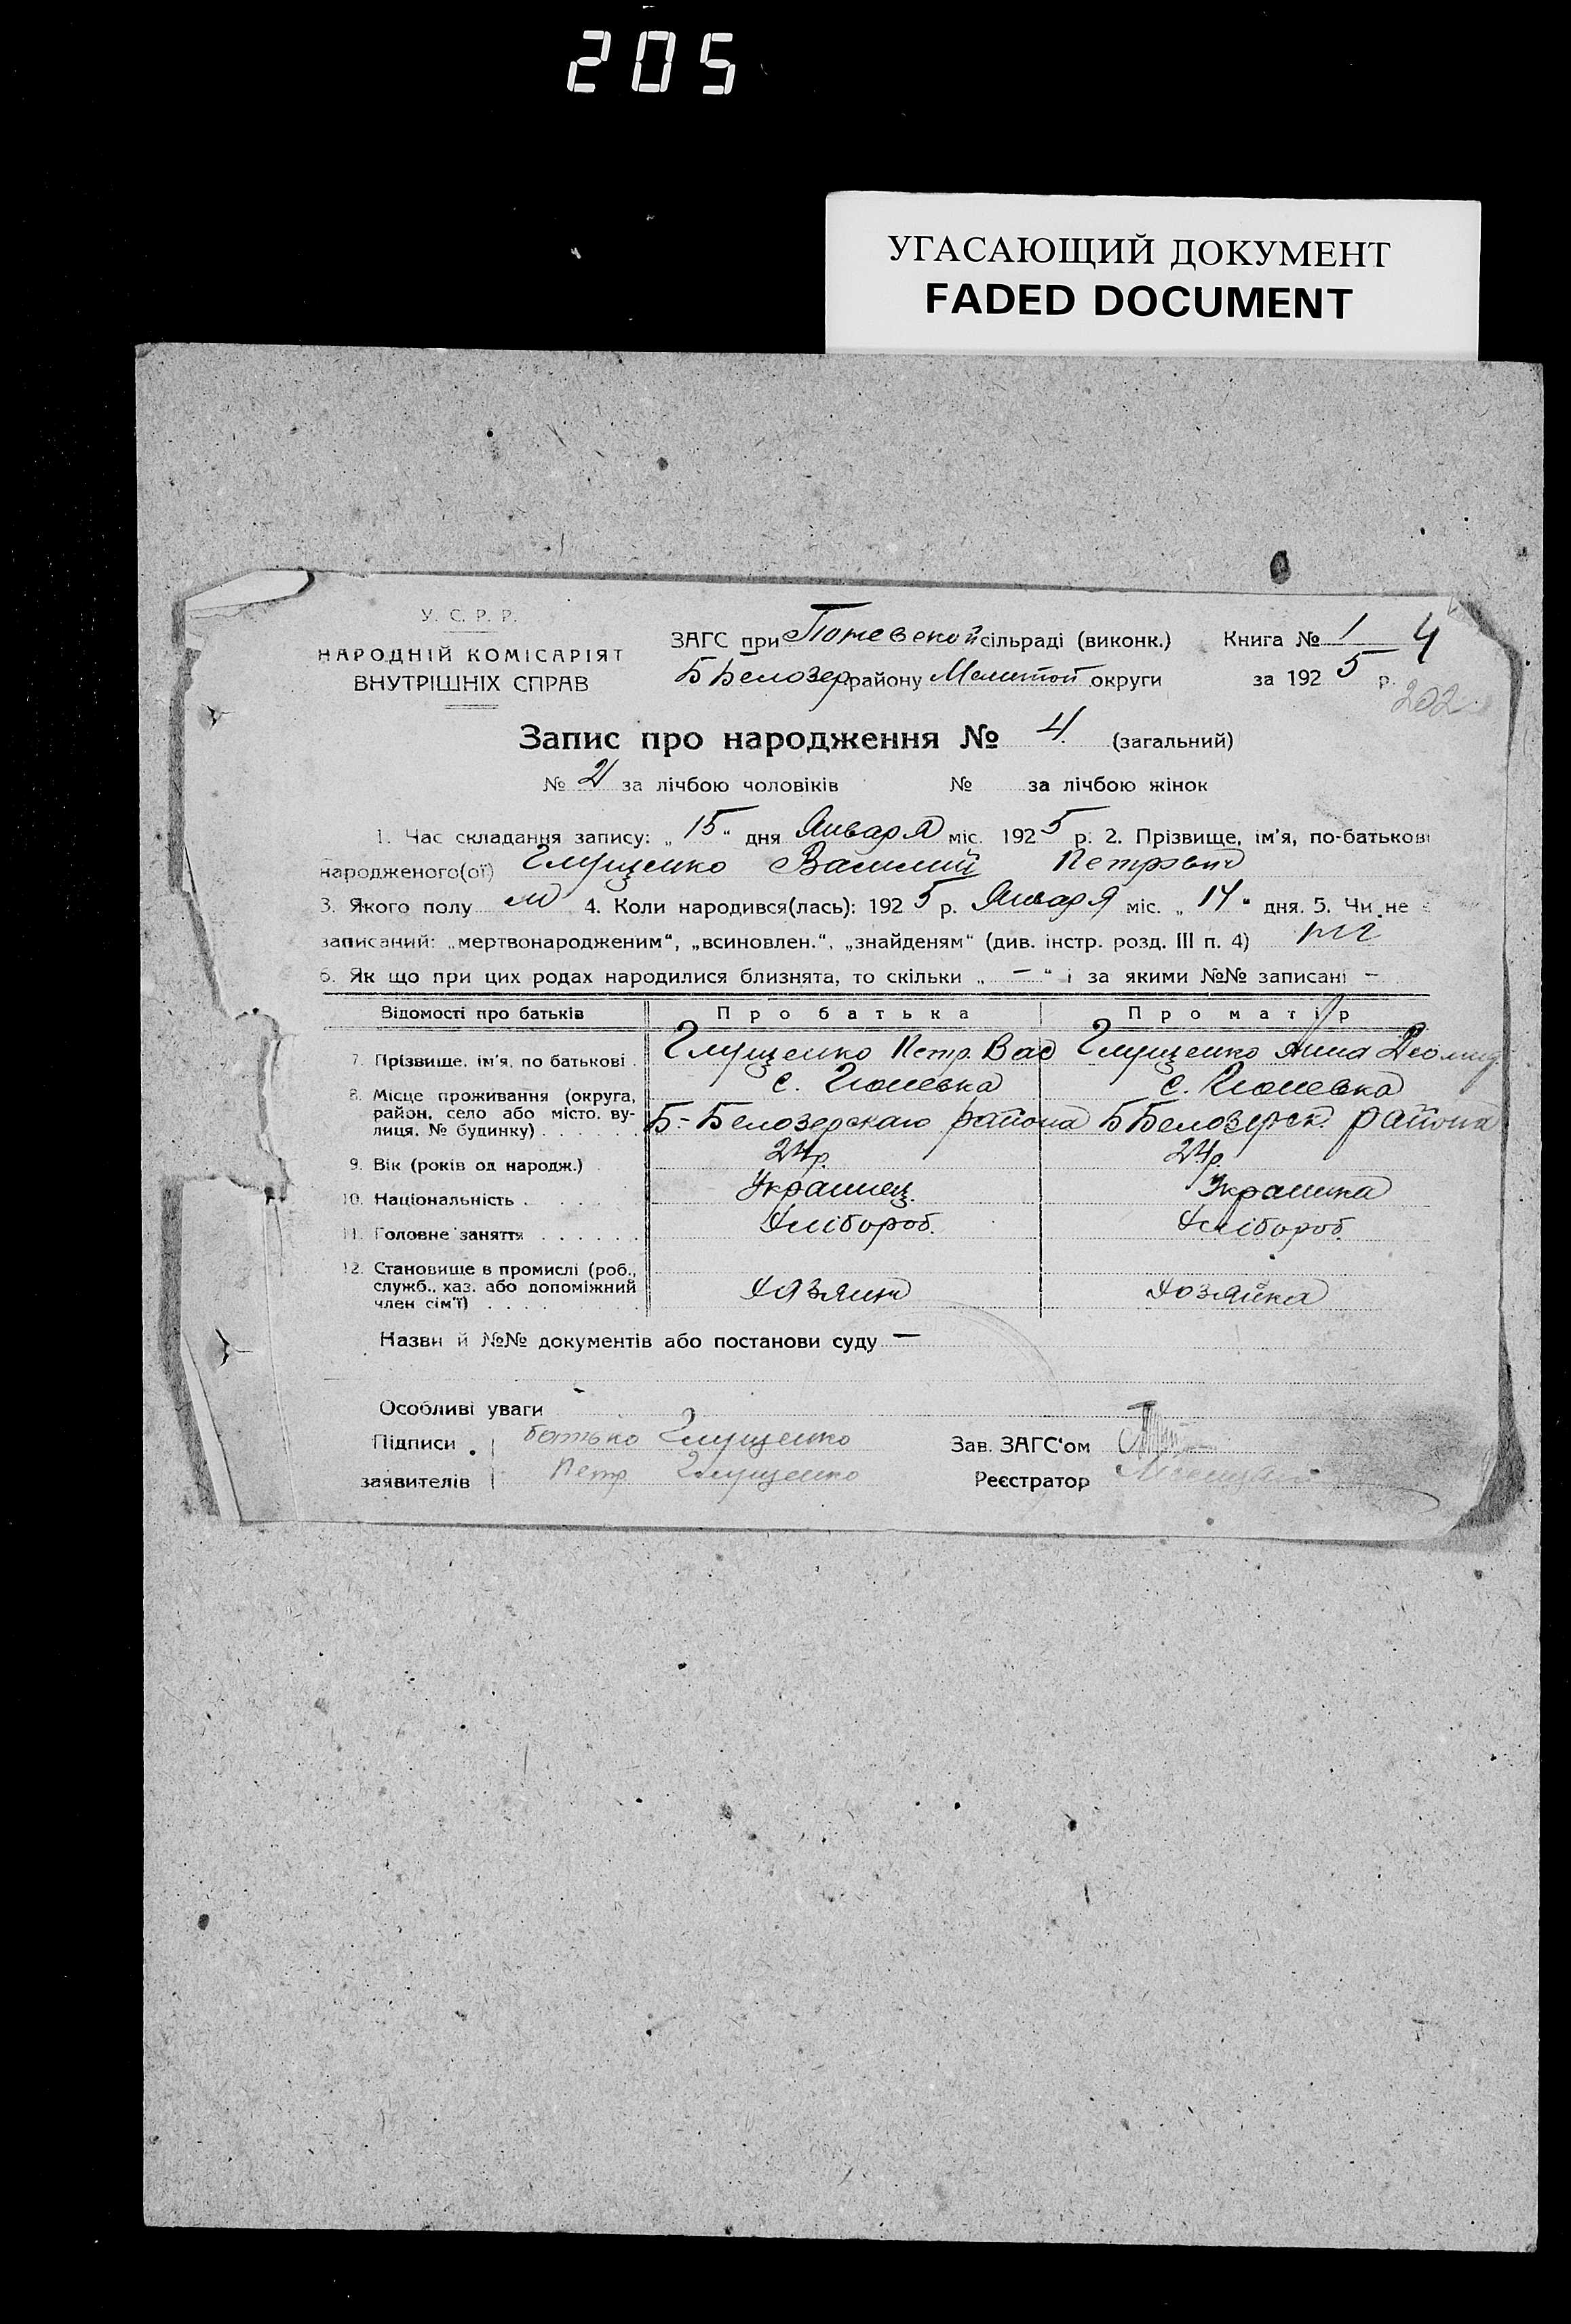 205
УГАСАЮЩИЙ ДОКУМЕНТ
FADED DOCUMENT
У. С. Р. Р.
НАРОДНІЙ КОМІСАРІЯТ
ВНУТРІШНІХ СПРАВ
ЗАГС при сільраді (виконк.) Книга № 1 4
Б Белозер району Мелитоп округи за 192 5 р.
202
Запис про народження № 4. (загальний)
№ 2 за лічбою чоловіків № за лічбою жінок
1. Час складання запису: „ 15 “ дня Января міс. 192 5 р. 2. Прізвище, ім’я, по-батькові
народженого(ої) Глущенко Василий Петрович
3. Якого полу м 4. Коли народився(лась): 192 5 р. Января міс. „ 14 “ дня. 5. Чи не є
записаний: „мертвонародженим“, „всиновлен.“, „знайденям“ (див. інстр. розд. III п. 4)
6. Як що при цих родах народилися близнята, то скільки „ — “ і за якими №№ записані —
Відомості про батьків Про батька Про матір
7. Прізвище, ім’я, по батькові . Глущенко Петр. Вас Глущенко Анна Диомид
8. Місце проживання (округа, район, село або місто, вулиця, № будинку) . . . . . . с.
Б-Белозерскаго района с. Б Белозерск. района
9. Вік (років од народж.) 24 р. 24 р.
10. Національність . . . . . Украинец. Украинка
11. Головне заняття . . . . . . Хлібороб. Хлібороб.
12. Становище в промислі (роб.,
служб., хаз. або допоміжний
член сім’ї) . . . . . . Хазяин Хозяйка
Назви й №№ документів або постанови суду —
Особливі уваги
Підписи батько Глущенко Зав. ЗАГС‘ом
заявителів Петр Глущенко Реєстратор